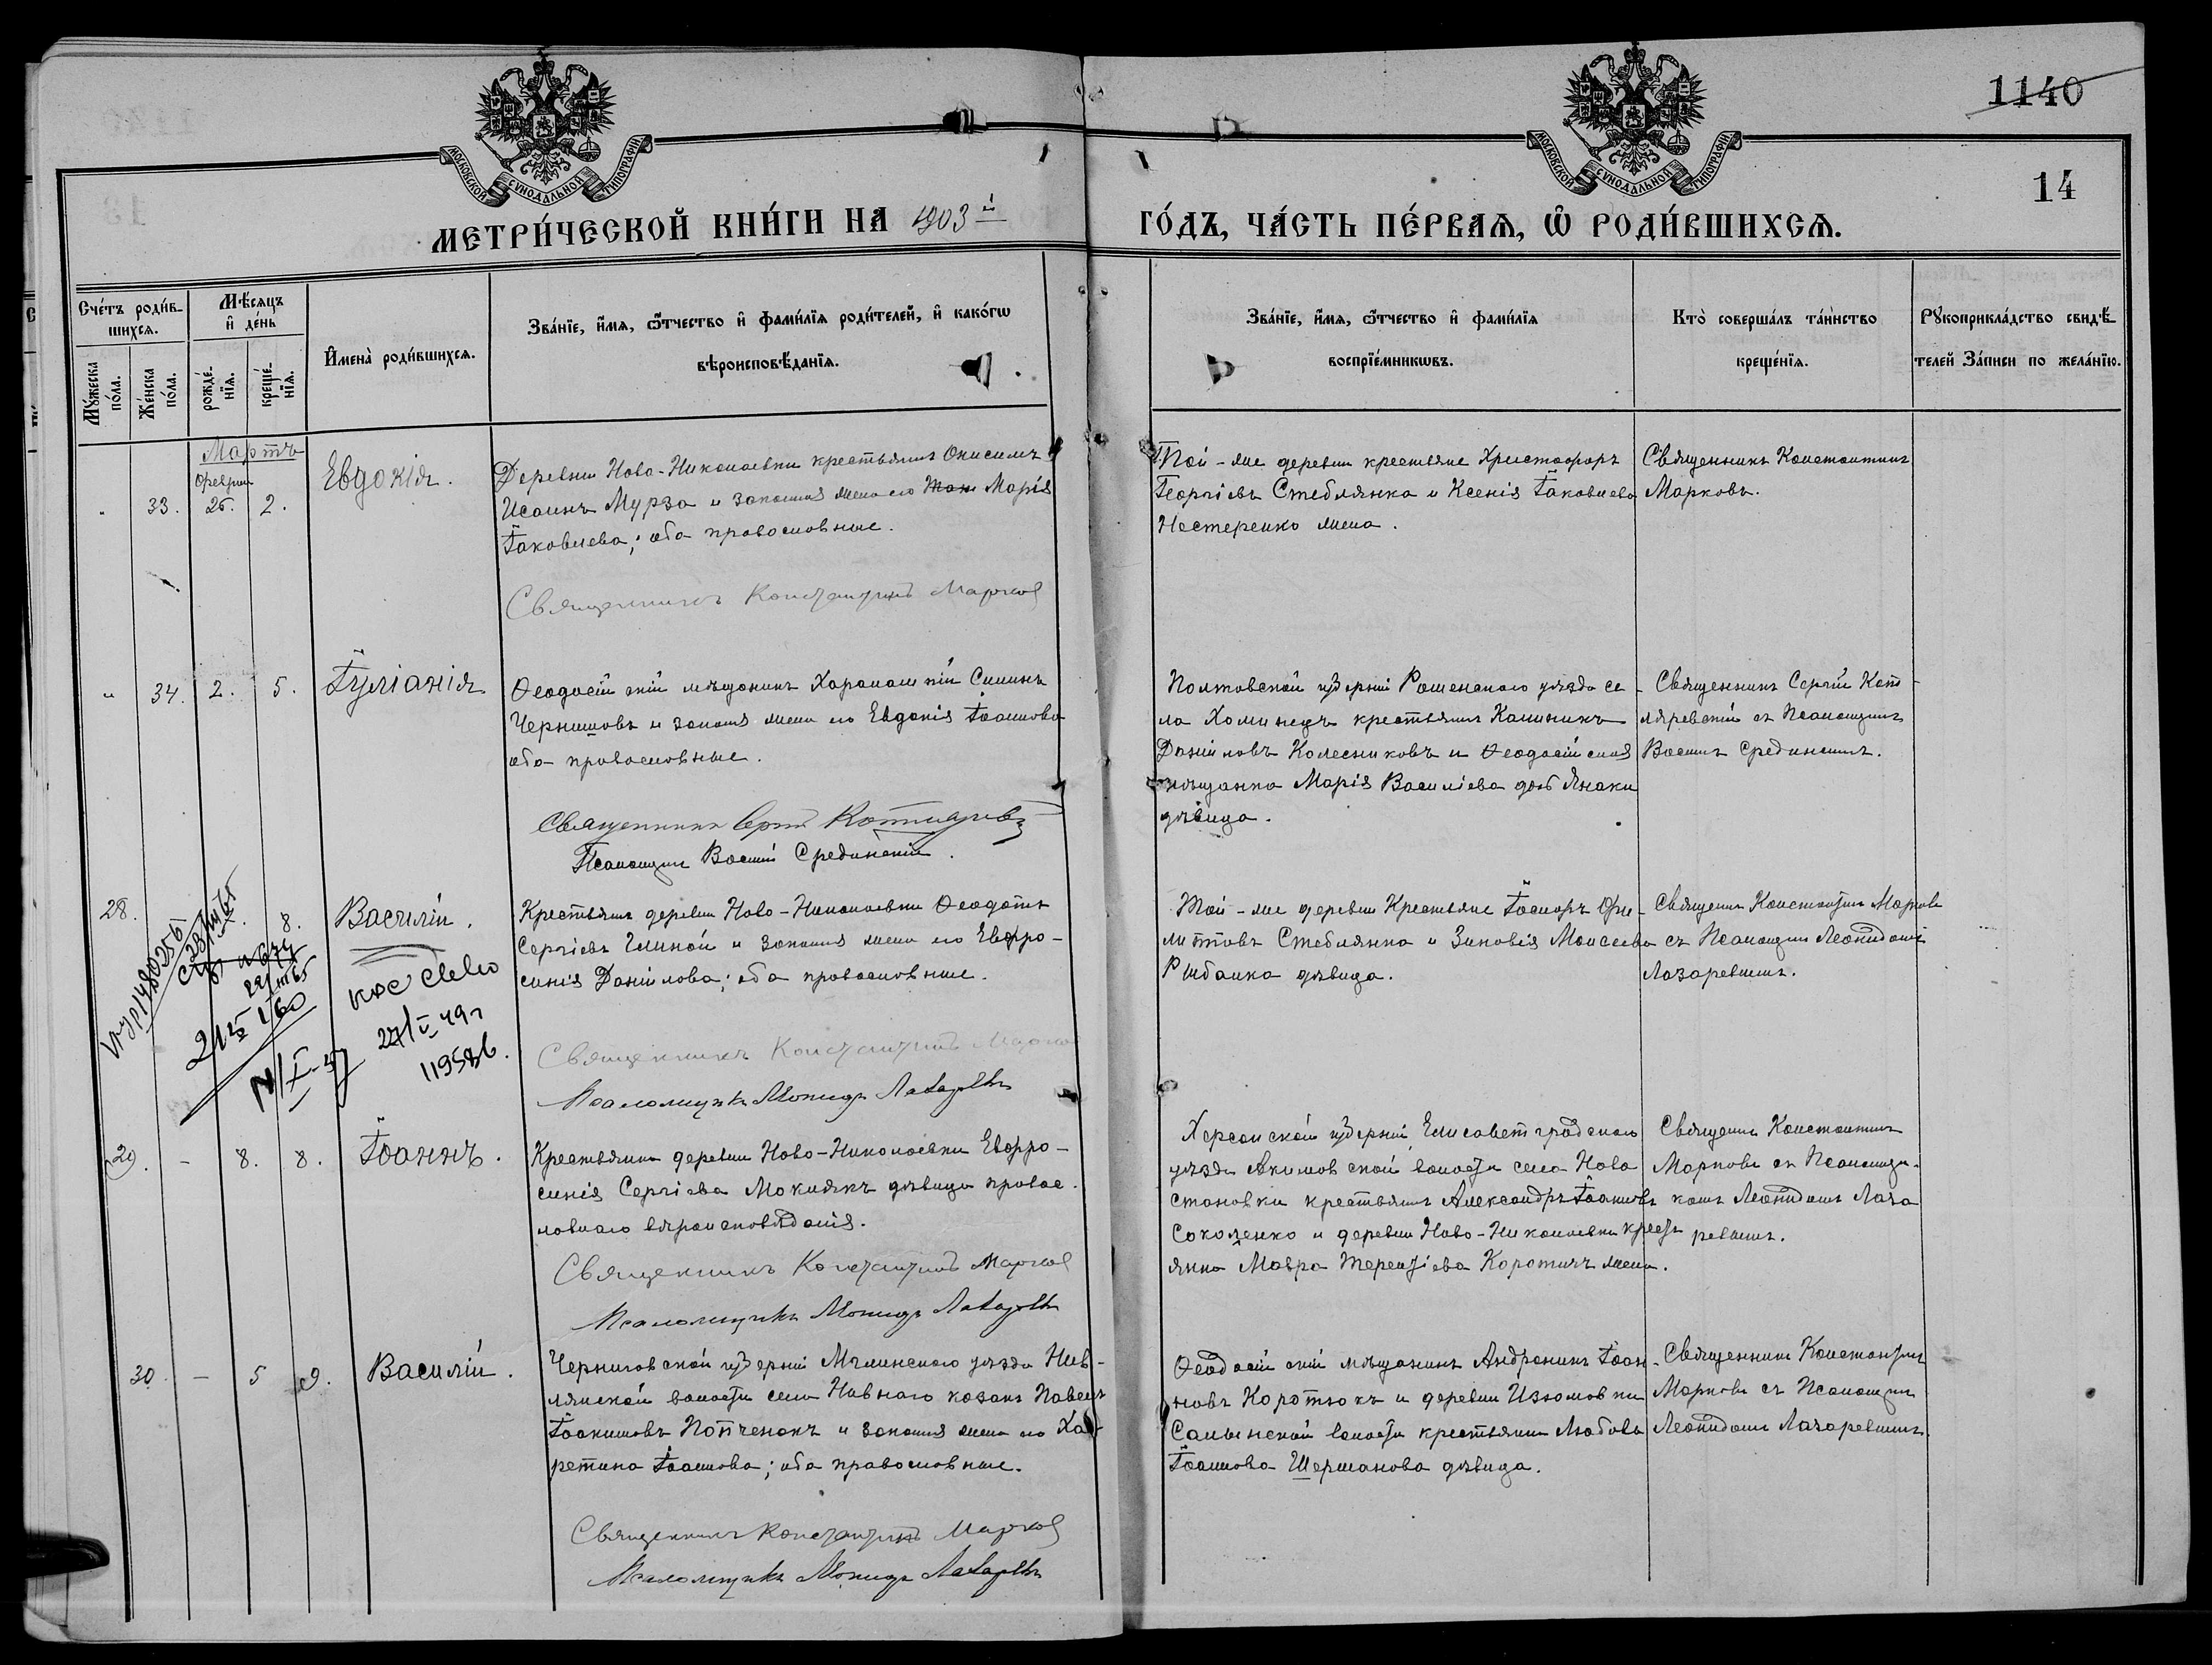 1140
14
МОСКОВСКОЙ СѴНОДАЛЬНОЙ ТИПОГРАФІИ
МОСКОВСКОЙ СѴНОДАЛЬНОЙ ТИПОГРАФІИ
МЕТРИ́ЧЕСКОЙ КНИ́ГИ НА 1903 й
ГО́ДЪ, ЧА́СТЬ ПЕ́РВАѦ, Ѡ҆ РОДИ́ВШИХСѦ.
Сче́тъ роди́в-
шихсѧ.
Му́жеска по́ла.
Же́нска по́ла.
Мѣ́сяцъ
и҆ де́нь
рожде́-
нїѧ.
креще́-
нїѧ.
И҆мена̀ роди́вшихсѧ.
Зва́нїе, и҆́мѧ, ѻ҆́тчество и҆ фами́лїѧ роди́телей, и҆ како́гѡ
вѣроисповѣ́данїѧ.
Зва́нїе, и҆́мѧ, ѻ҆́тчество и҆ фами́лїѧ
воспрїе́мникѡвъ.
Кто̀ соверша́лъ та́инство
креще́нїѧ.
Рꙋкоприкла́дство свидѣ́-
телей за́писи по жела́нїю.
Мартъ
Феврал
" 33. 25. 2. Евдокія.
Деревни Ново-Николаевки крестьянинъ Онисимъ
Исаинъ Мурза и законная жена его Марія
Іаковлева; оба православные.
Священникъ Константинъ Марков
Той-же деревни крестьяне Христофоръ
Георгіевъ Стеблянка и Ксенія Іаковлева
Нестеренко жена.
Священникъ Константинъ
Марковъ.
" 34. 2. 5. Іуліанія
Ѳеодосійскій мѣщанинъ Харалампій Симинъ
Чернышовъ и законная жена его Евдокія Іоаннова
оба православные.
Священникъ Сергій Котляревскій
Псаломщикъ Василій Срединскій.
Полтавской губерніи Роменскаго уѣзда се-
ла Хоминецъ крестьянинъ Калиникъ
Даніиловъ Колесниковъ и Ѳеодосійская
мѣщанка Марія Васильева Янаки
дѣвица.
Священникъ Сергій Кот-
ляревскій съ Псаломщикомъ
Василіемъ Срединскимъ.
28. 8. Василій.
Крестьянинъ деревни Ново-Николаевки Ѳеодотъ
Сергіевъ и законная жена его Евфро-
синія Даніилова; оба православные.
Священникъ Константинъ Марков
Псаломщикъ Леонидъ Лазаревъ
Той-же деревни Крестьяне Фи-
липповъ Стеблянка и Зиновія Моисеева
Рыбалка дѣвица.
Священникъ Константинъ Марковъ
съ Псаломщикомъ Леонидомъ
Лазаревымъ.
23/III 65
22/III 65
21 1/60
27/V 49 г
119586.
29. - 8. 8. Іоаннъ.
Крестьянка деревни Ново-Николаевки Евфро-
синія Сергіева Мокіякъ дѣвица правос-
лавнаго вѣроисповѣданія.
Священникъ Константинъ Марков
Псаломщикъ Леонидъ Лазаревъ
Херсонской губерніи Елисаветградскаго
уѣзда Акимовской волости села Ново
становки крестьянинъ Александръ Іоанновъ
Соколенко и деревни Ново-Николаевки крест-
янка Мавра Терентіева Коротичъ жена.
Священникъ Константинъ
Марковъ съ Псаломщи-
комъ Леонидомъ Лаза
ревымъ.
30. - 5 9. Василій.
Черниговской губерніи Мглинскаго уѣзда Нив-
лянской волости села Нивнаго казакъ Павелъ
Іоакимовъ Попченокъ и законная жена его Ха-
ретина Іоаннова; оба православные.
Священникъ Константинъ Марков
Псаломщикъ Леонидъ Лазаревъ
Ѳеодосійскій мѣщанинъ Андроникъ Іоан-
новъ Коротюкъ и деревни Изюмовки
Салынской волости крестьянка Любовь
Іоаннова Шерманова дѣвица.
Священникъ Константинъ
Марковъ съ Псаломщикомъ
Леонидомъ Лазаревымъ.